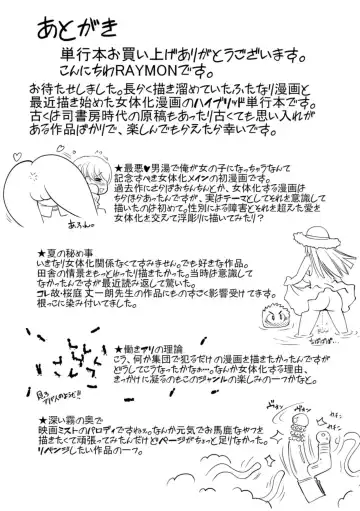 あとがき
単行本お買い上げありがとうございます。
こんにちわRAYMONです。
お待たせしました。長らく描き溜めていたふたなり漫画と
最近描き始めた女体化漫画のハイブリッド単行本です。
古くは司書房時代の原稿もあったり古くても思い入れが
ある作品ばかりで、楽しんでもらえたら幸いです。
★最悪♥男湯で俺が女の子になっちゃうなんて
記念すべき女体化メインの初漫画です。
過去作にさらばおちんちんとか、女体化する漫画は
ちらほらあったんですが、実はテーマとしてそれを意識して
描いたのは初めてで。性別による障害とそれを超えた愛を
女体化を交えて浮彫りに描いてみたり?
★夏の秘め事
いきなり女体化関係なくてすみません。でも好きな作品。
田舎の情景をもっとじっくり描きたかった。当時は意識して
なかったんですが最近読み返して驚いた。
コレ故・桜庭 丈一朗先生の作品にものすごく影響受けてます。
根っこに染み付いてました。
★働きアリの理論
こう、何か集団で犯るだけの漫画を描きたかったんですが
どうしてこうなったかなぁ…。なんか女体化する理由、
きっかけに凝るのもこのジャンルの楽しみの一つかなと。
★深い霧の奥で
映画ミストのパロディですねぇ。なんか元気でお馬鹿なやつを
描きたくて頑張ってみたんだけどページがちょっと足りなかった。
リベンジしたい作品の一つ。